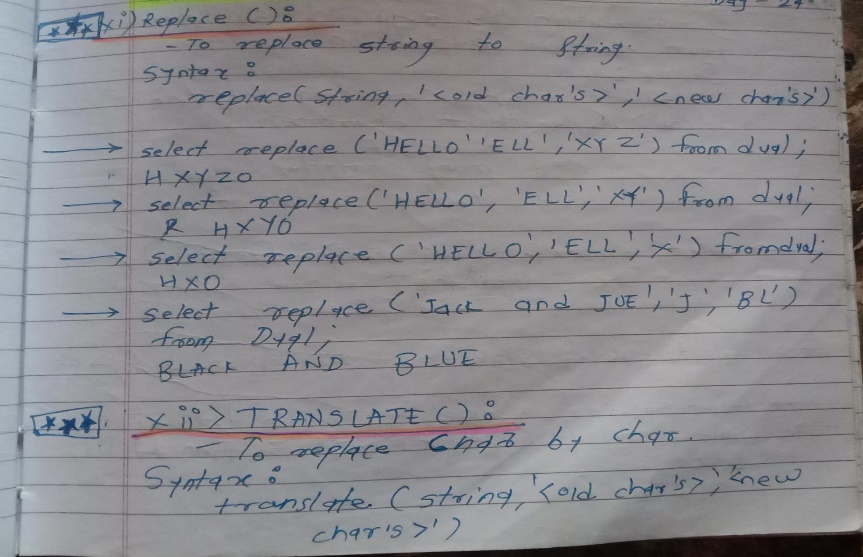 Day - 24
*** xi) Replace () :
- To replace string to string.
Syntax :
replace( string, '<old char's>', '<new char's>')
→ select replace ('HELLO' 'ELL', 'XYZ') from dual;
HXYZO
→ select replace ('HELLO', 'ELL', 'XY') from dual;
R HXYO
→ select replace ('HELLO', 'ELL', 'X') from dual;
HXO
→ select replace ('Jack and JUE', 'J', 'BL')
from Dual;
BLACK AND BLUE
*** xii> TRANSLATE () :
- To replace Char by char.
Syntax :
translate (string, '<old char's>', '<new
char's>')